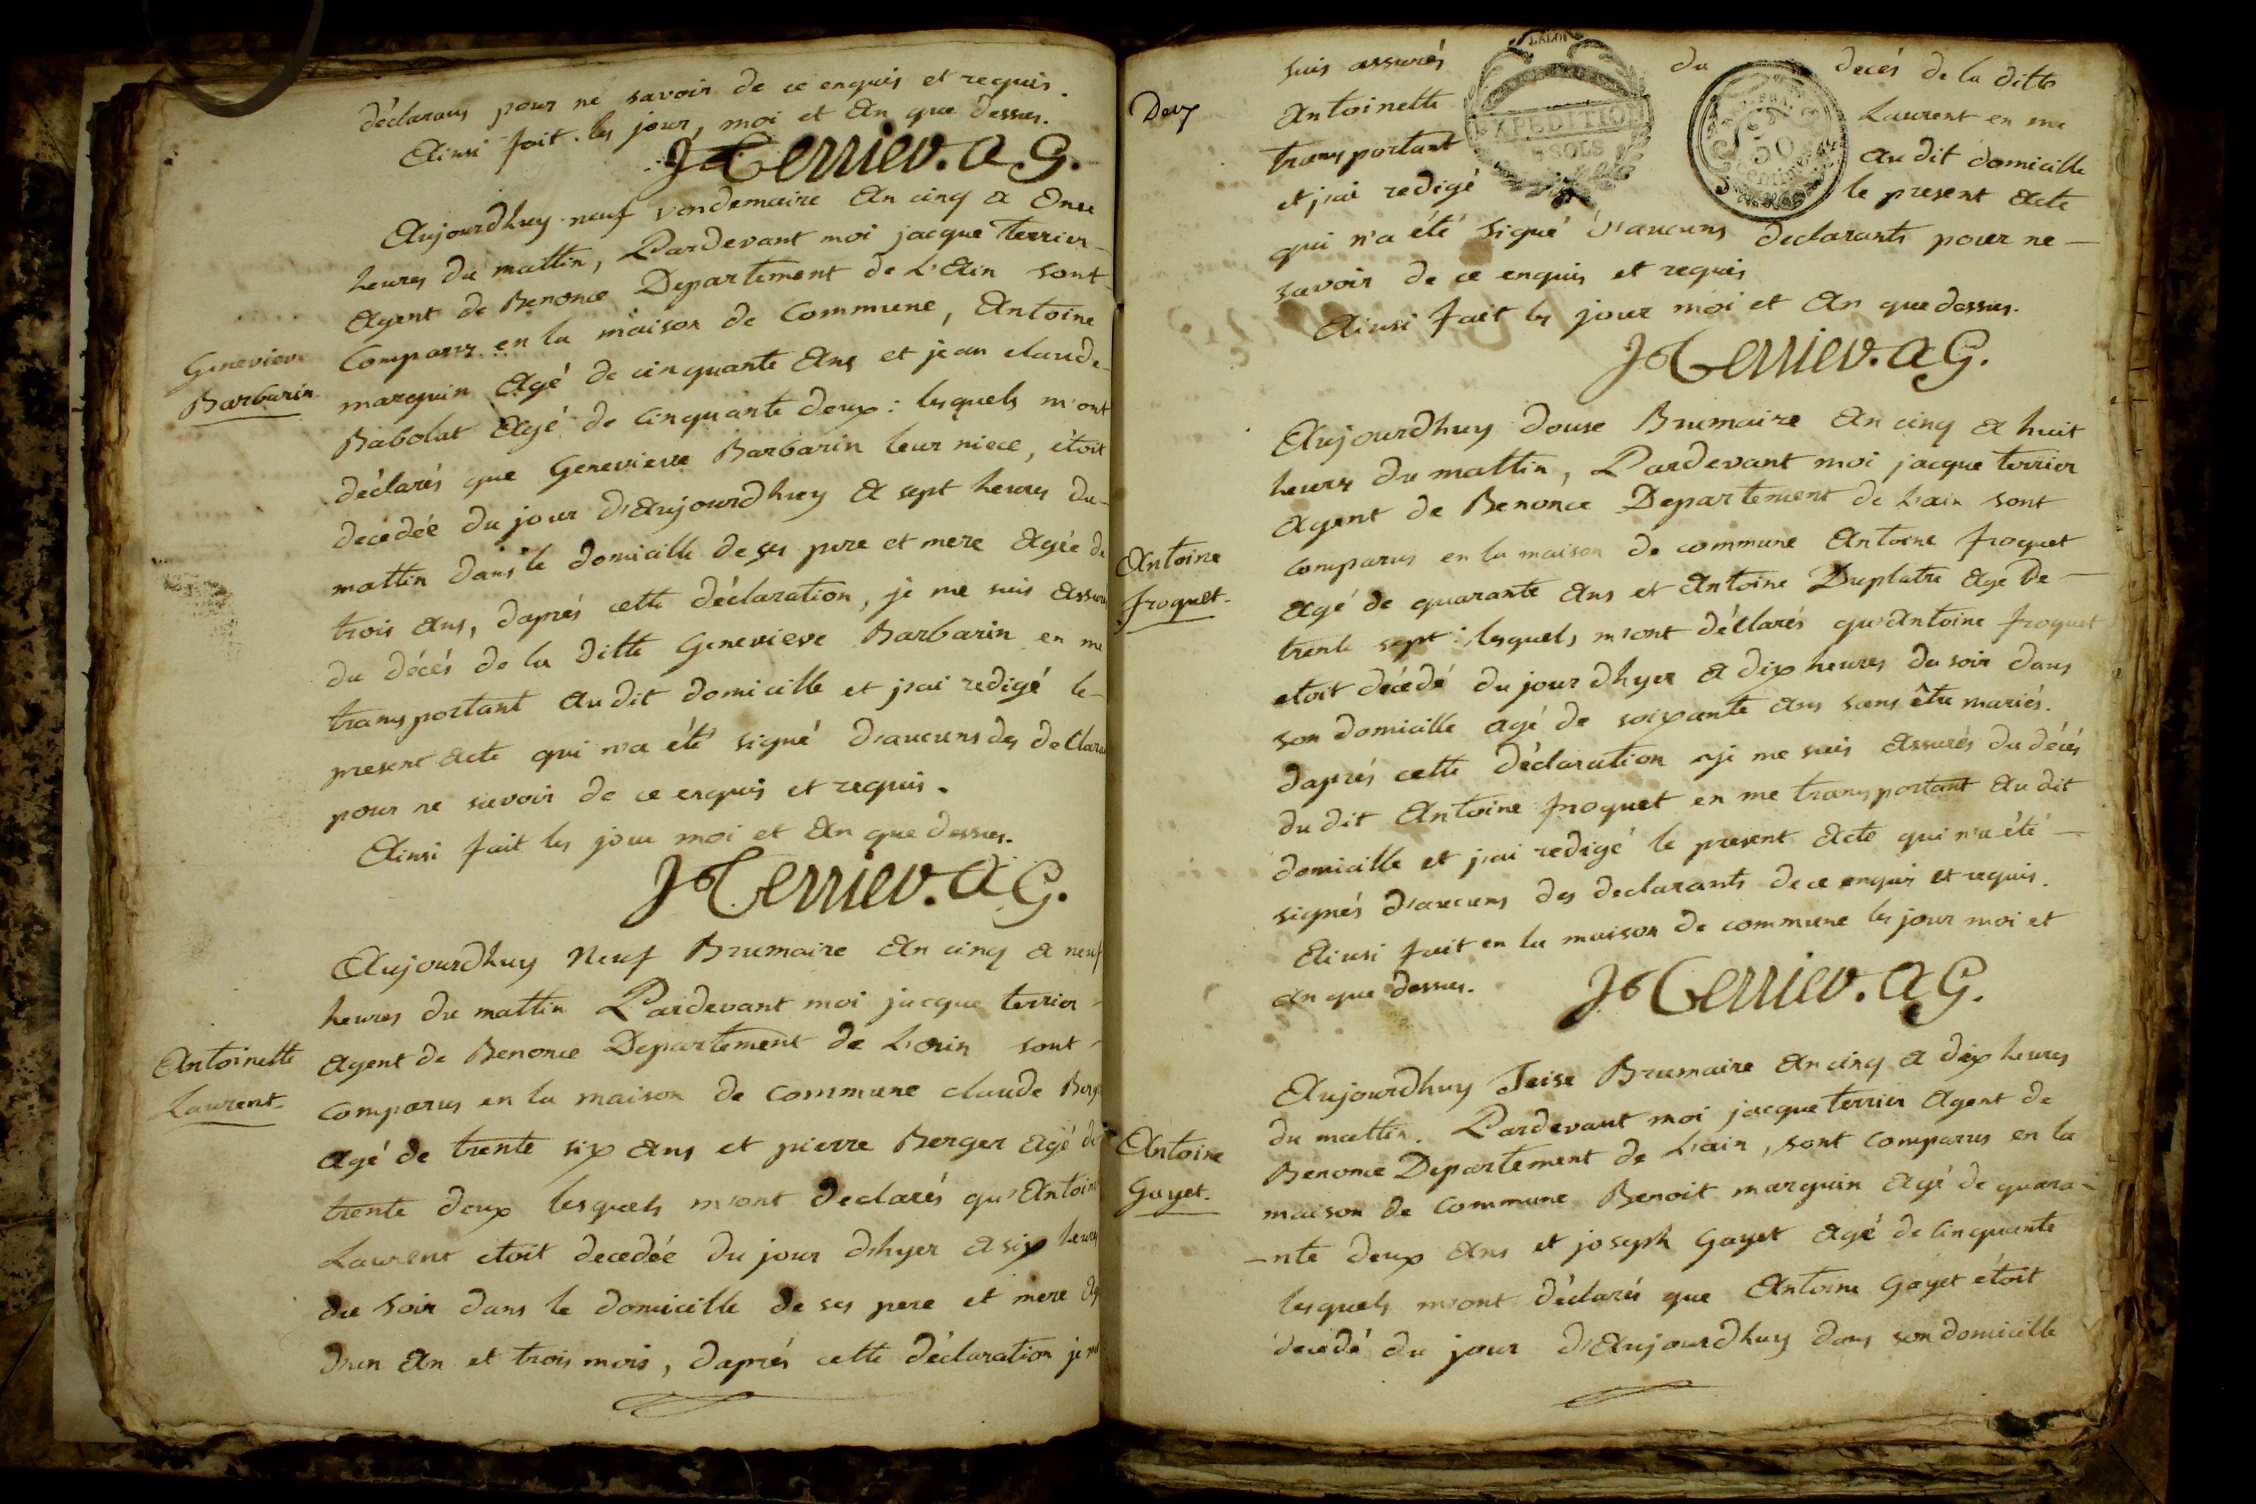 déclarans pour ne savoir de ce enquis et requis.
Ainsi fait les jour, moi et An que dessus.
J Terrier. A G.
Aujourdhuy neuf vendemaire An cinq a Onze
heures du mattin, Pardevant moi jacque terrier
Agent de Benonce Departement de L'Ain sont
Comparus en la maison de Commune, Antoine
marguin Agé de cinquante Ans et jean claude
Babolat Agé de cinquante deux : lesquels m'ont
déclarés que Genevieve Barbarin leur niece, étoit
Genevieve
Barbarin
decedée du jour d'Aujourdhuy A sept heures du
mattin dans le domicille de ses pere et mere Agée de
trois Ans, daprés cette déclaration, je me suis Assuré
du décés de la ditte Genevieve Barbarin en me
transportant Au dit domicille et j'ai redigé le
present Acte qui n'a été signé d'aucuns des declara
pour ne savoir de ce enquis et requis.
Ainsi fait les jour moi et An que dessus.
J Terrier. A G.
Aujourdhuy Neuf Brumaire An cinq a neuf
heures du mattin Pardevant moi jacque terrier
Agent de Benonce Departement de L'Ain sont
Antoinette
Laurent
Comparus en la maison de Commune claude Berg
Agé de trente six Ans et pierre Berger Agé de
trente deux lesquels m'ont declarés qu'Antoin
Laurent etoit decedée du jour d'hyer a six heures
du soir dans le domicille de ses pere et mere Ag
d'un An et trois mois, daprés cette déclaration je me
suis assurés du decés de la ditte
Deux
Antoinette Laurent en me
transportant Au dit domicille
et j'ai redigé le present Acte
LA LOI
EXPEDITION
SOLS
50
Centimes
qui n'a été signé d'aucuns declarants pour ne
savoir de ce enquis et requis
Ainsi fait les jour moi et An que dessus.
J Terrier. A G.
Aujourdhuy douse Brumaire An cinq A huit
heures du mattin, Pardevant moi jacque terrier
Agent de Benonce Departement de L'ain sont
Comparus en la maison de commune Antoine froquet
Antoine
froquet
Agé de quarante Ans et Antoine Duplatre Agé de
trente sept : lesquels m'ont déclarés qu'Antoine froquet
etoit décédé du jour d'hyer A dix heures du soir dans
son domicille agé de soixante Ans sans être mariés.
daprés cette déclaration je me suis Assurés du décés
du dit Antoine froquet en me transportant Au dit
domicille et j'ai redigé le present Acte qui n'a été
signés d'aucuns des declarants de ce enquis et requis.
Ainsi fait en la maison de commune les jour moi et
An que dessus.
J Terrier. A G.
Aujourdhuy Treise Brumaire An cinq A dix heures
du mattin. Pardevant moi jacque terrier Agent de
Benonce Departement de L'ain, sont Comparus en la
Antoine
Gayet
maison de Commune Benoit marguin Agé de quara-
-nte deux Ans et joseph Gayet Agé de cinquante
lesquels m'ont déclarés que Antoine Gayet étoit
décédé du jour d'Aujourdhuy dans son domicille